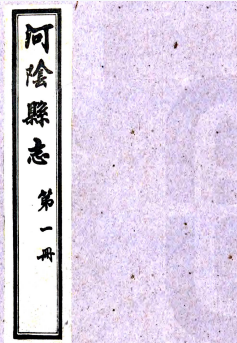 河陰縣志 第一冊